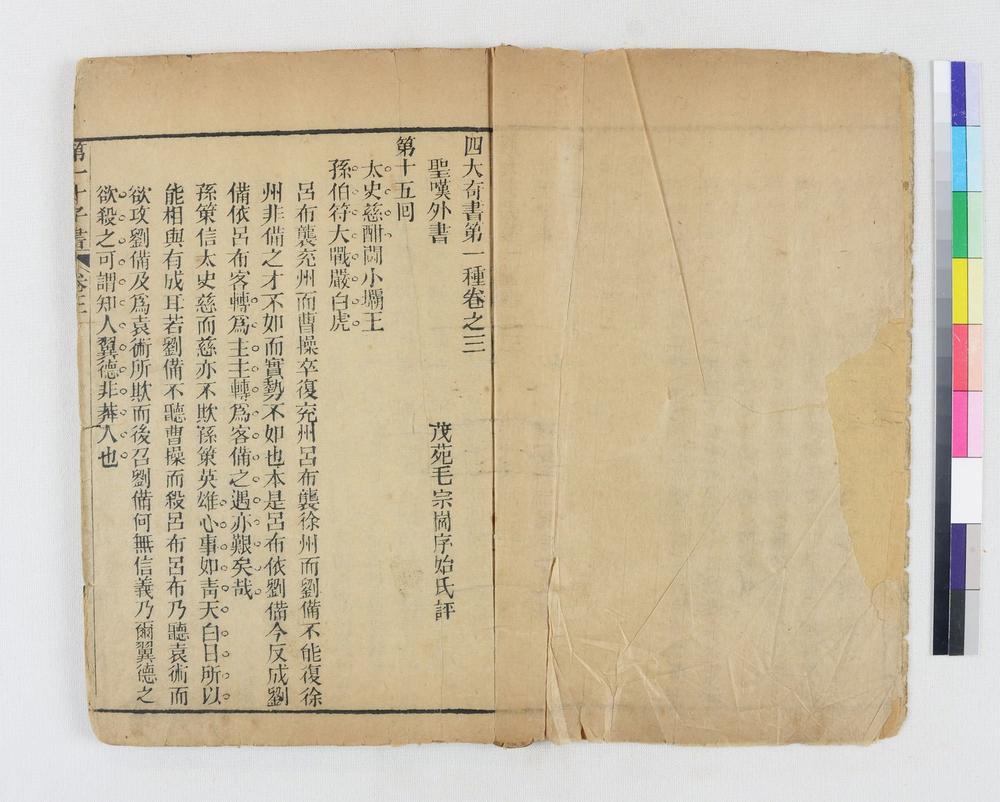 四大奇書第一種卷之三
聖嘆外書
茂苑毛宗崗序始氏評
第十五回
太史慈酣鬬小霸王
孫伯符大戰嚴白虎
呂布襲兖州而曹操卒復兖州呂布襲徐州而劉備不能復徐
州非備之才不如而實勢不如也本是呂布依劉備今反成劉
備依呂布客轉爲主主轉爲客備之遇亦艱矣哉
孫策信太史慈而慈亦不欺孫策英雄心事如靑天白日所以
能相與有成耳若劉備不聽曹操而殺呂布呂布乃聽袁術而
欲攻劉備及爲袁術所欺而後召劉備何無信義乃爾翼德之
欲殺之可謂知人翼德非莽人也
第一才子書 卷三